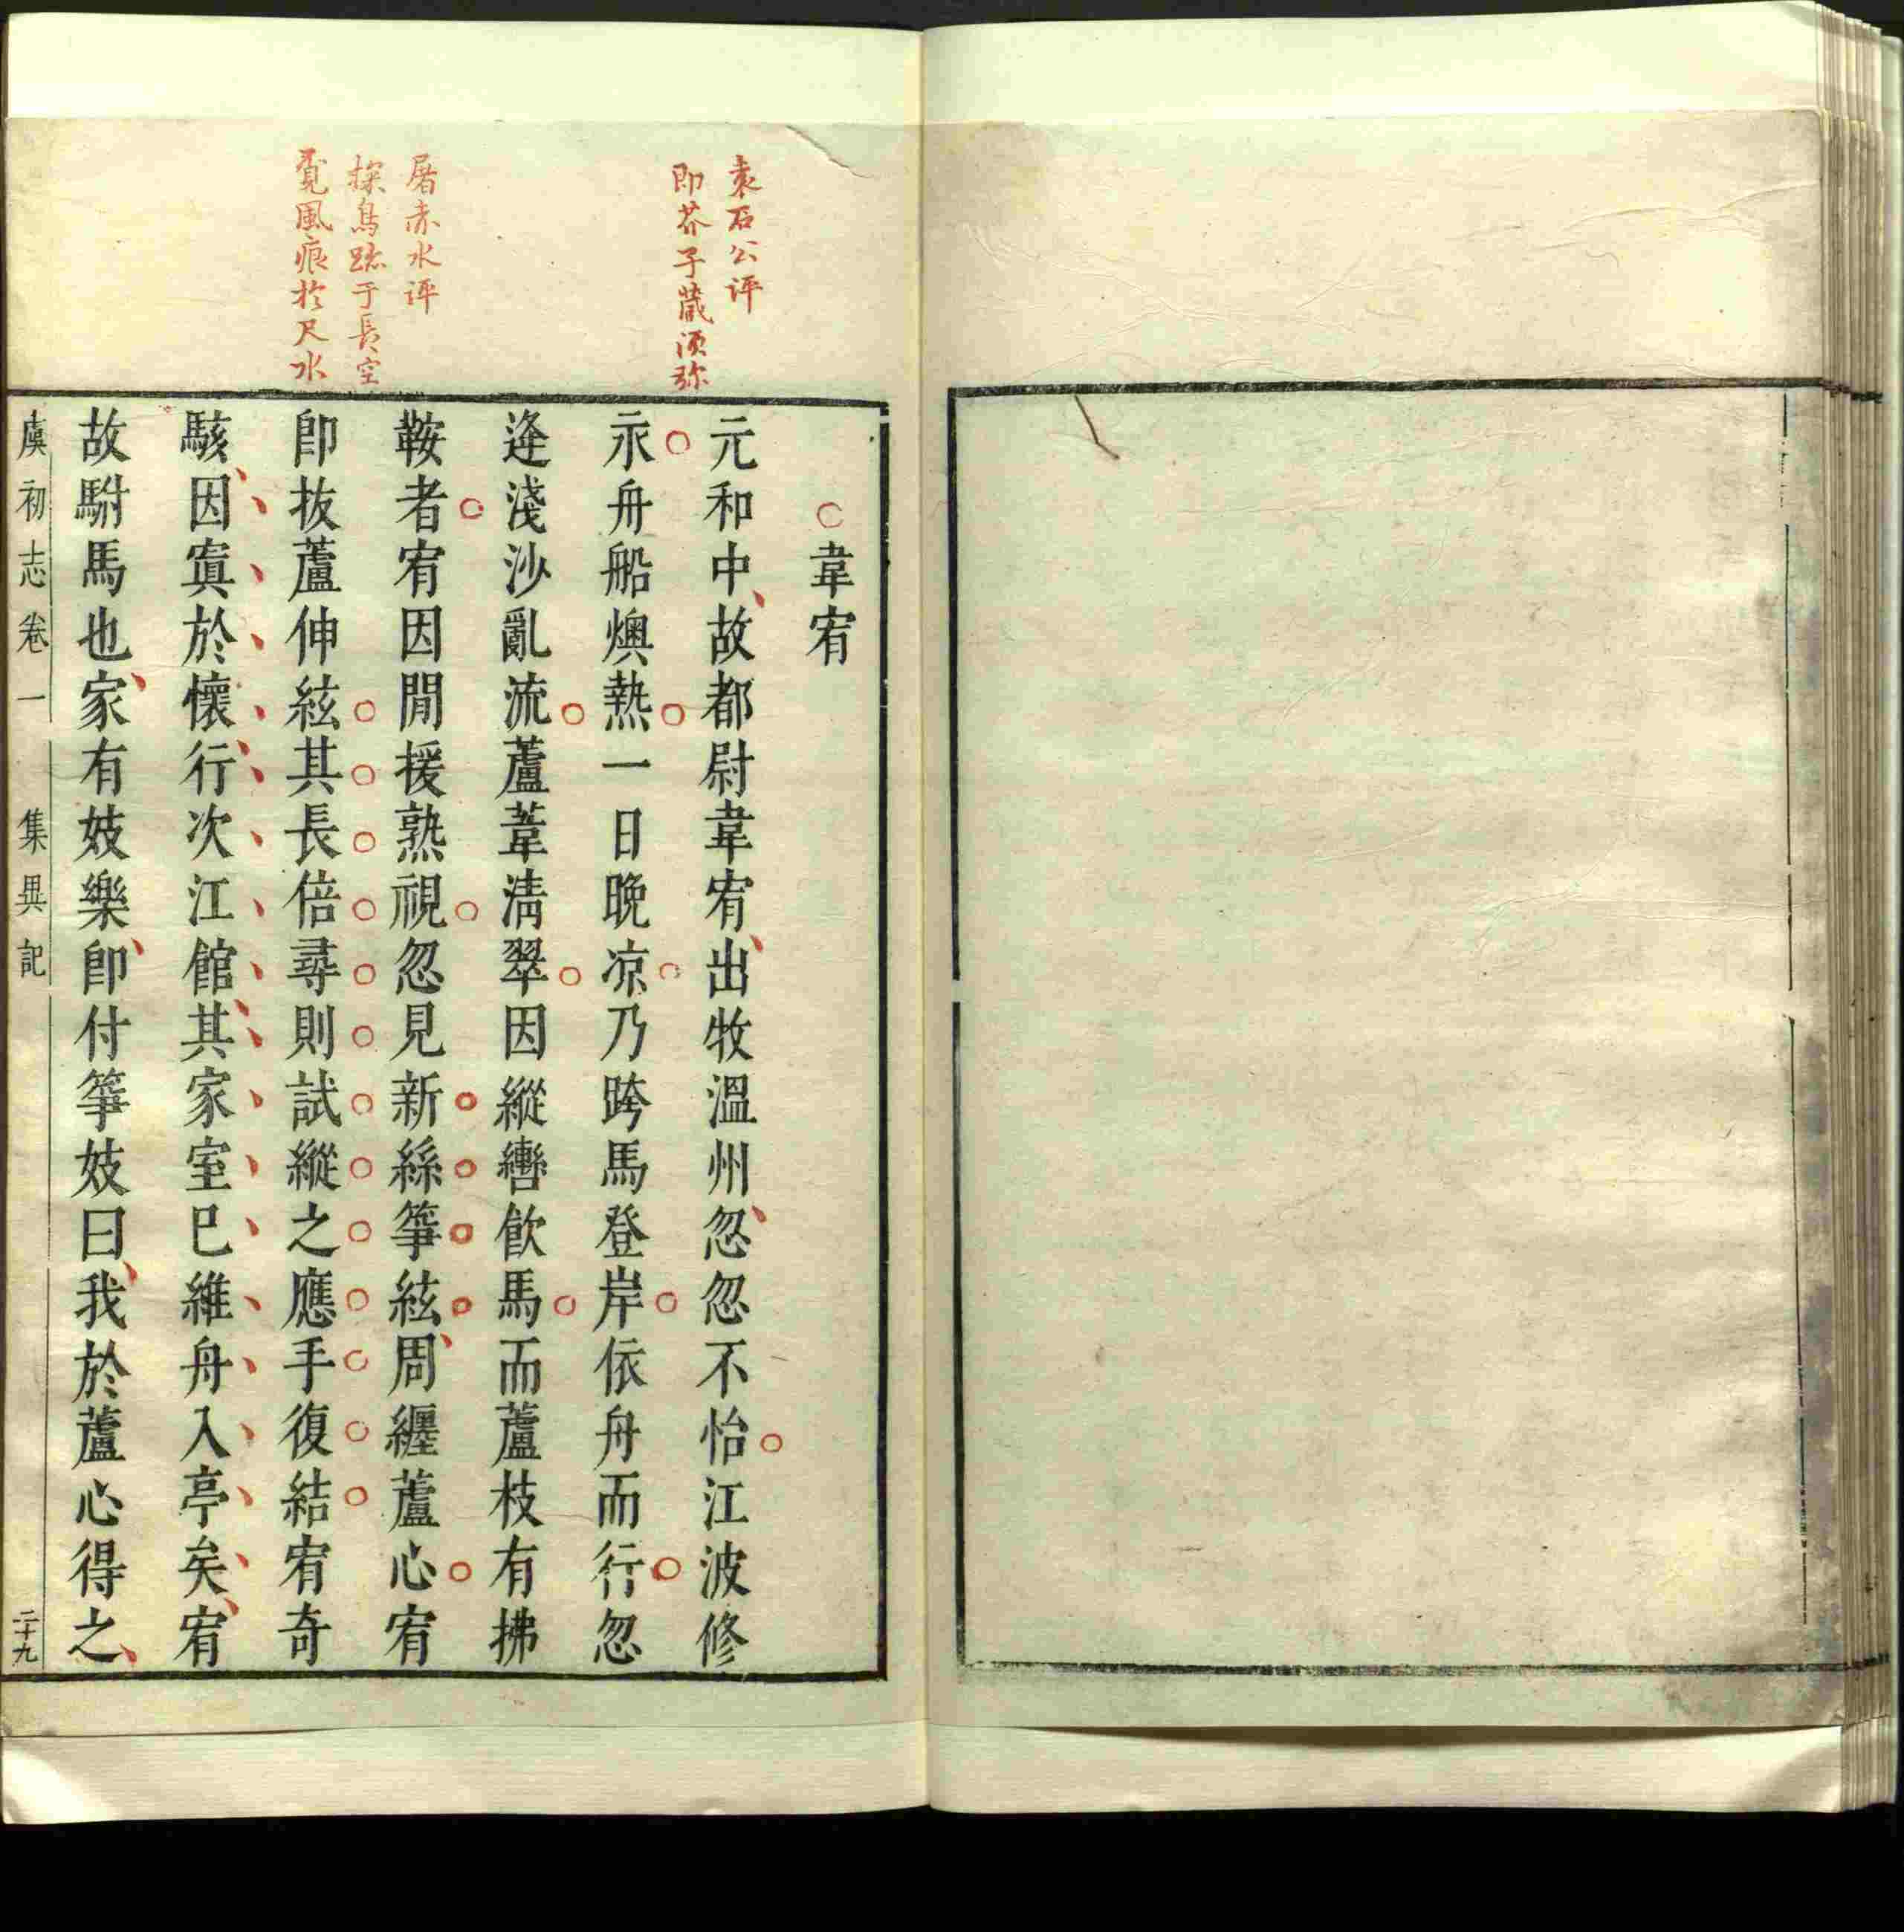 袁石公評
即芥子藏須弥
屠赤水評
探鳥跡于長空
覓風痕於尺水
韋宥
元和中故都尉韋宥出牧溫州忽忽不怡江波修
永舟船燠熱一日晚凉乃跨馬登岸依舟而行忽
逢淺沙亂流蘆葦淸翠因縱轡飲馬而蘆枝有拂
鞍者宥因閒援熟視忽見新絲箏絃周纏蘆心宥
卽拔蘆伸絃其長倍尋則試縱之應手復結宥奇
駭因寘於懷行次江館其家室已維舟入亭矣宥
故駙馬也家有妓樂卽付箏妓曰我於蘆心得之
虞初志卷一 集異記 二十九